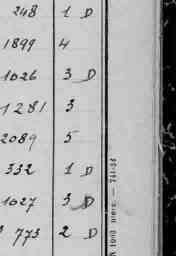 248 1 D
1899 4
1026 3 D
1281 3
2089 5
332 1 D
1027 3 D
773 2 D